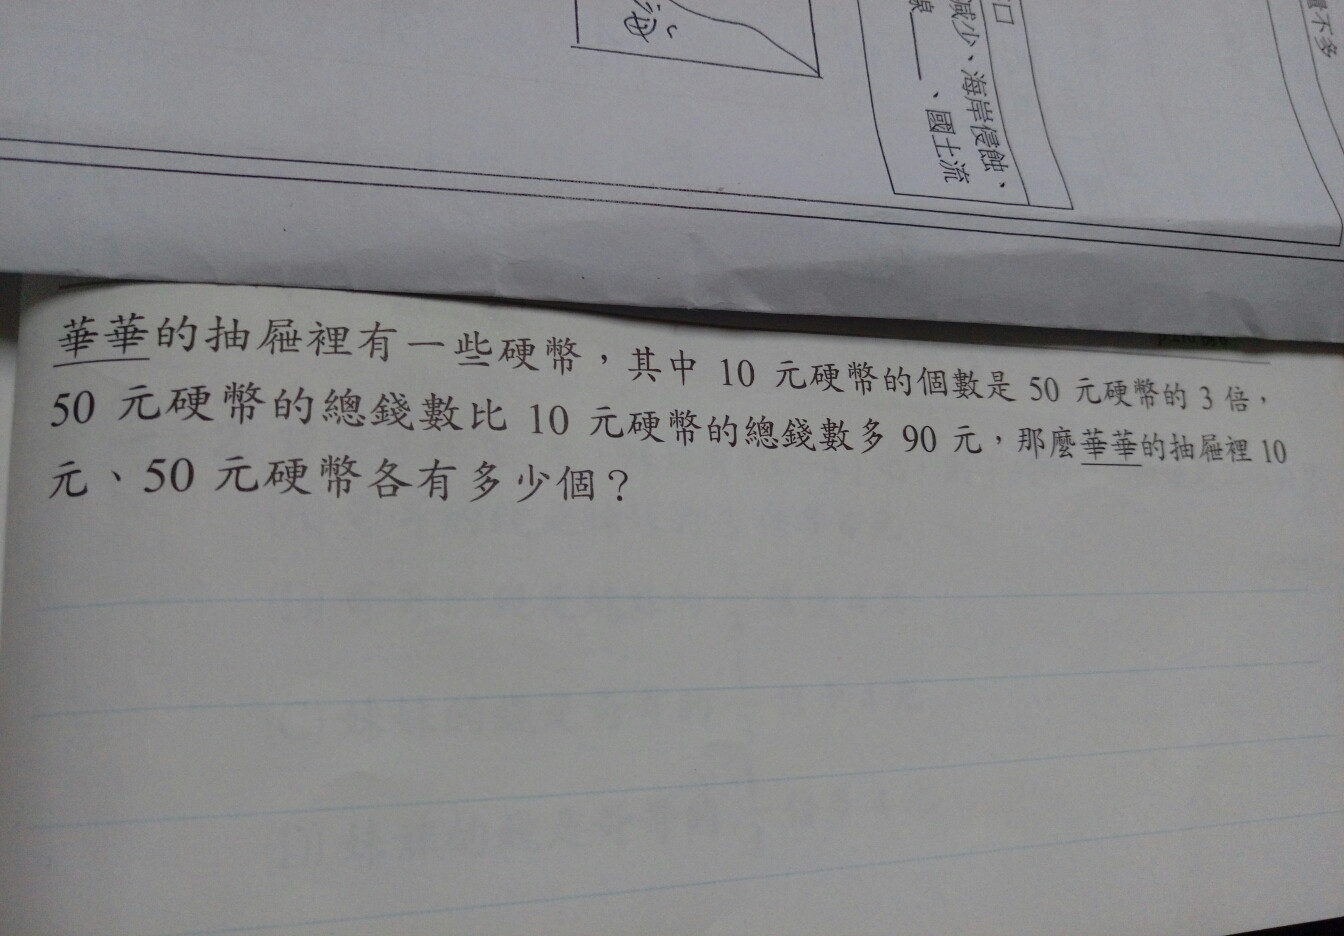 量不多
口
減小、海岸侵蝕、
線 、國土流
海
華華的抽屜裡有一些硬幣，其中 10 元硬幣的個數是 50 元硬幣的 3 倍，
50 元硬幣的總錢數比 10 元硬幣的總錢數多 90 元，那麼華華的抽屜裡 10
元、50 元硬幣各有多少個？